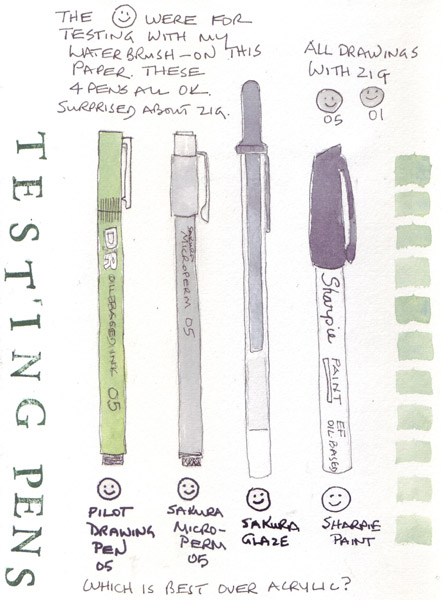 THE ☺ WERE FOR
TESTING WITH MY
WATERBRUSH — ON THIS
PAPER. THESE
4 PENS ALL OK.
SURPRISED ABOUT ZIG.
ALL DRAWINGS
WITH ZIG
05 01
TESTING PENS
DR OIL BASED INK 05
SAKURA
MICROPERM 05
Sharpie
PAINT EF
OIL-BASED
PILOT
DRAWING
PEN
05
SAKURA
MICRO-
PERM
05
SAKURA
GLAZE
SHARPIE
PAINT
WHICH IS BEST OVER ACRYLIC?